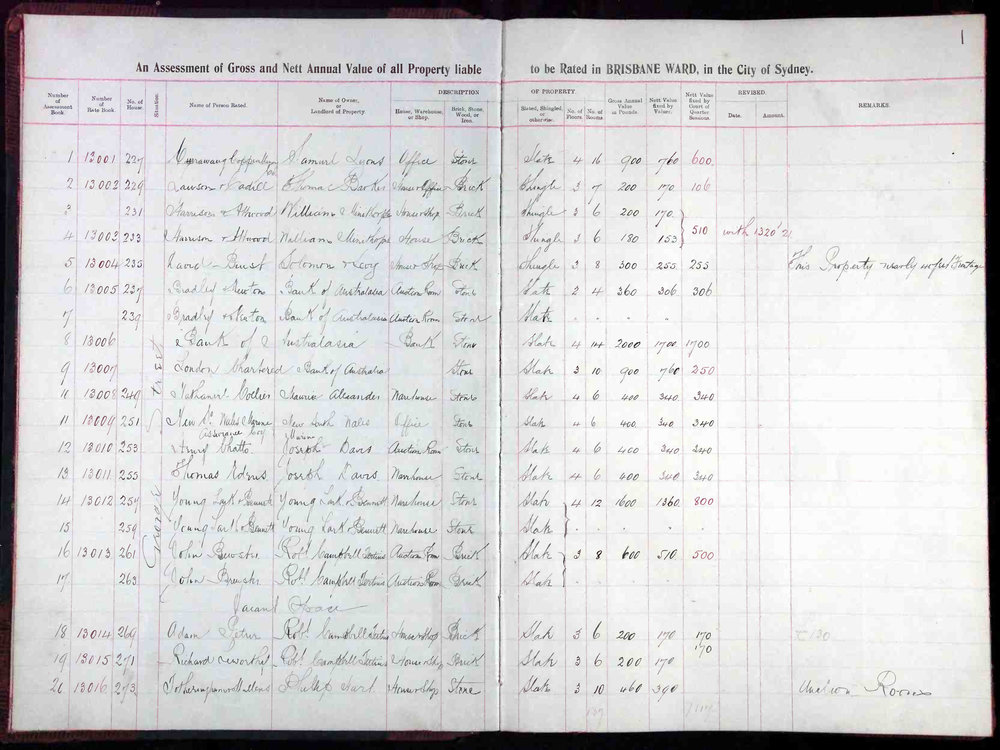 1
An Assessment of Gross and Nett Annual Value of all Property liable to be Rated in BRISBANE WARD, in the City of Sydney.
Number of Assessment Book. Number of Rate Book. No. of House. Situation. Name of Person Rated. Name of Owner, or Landlord of Property. DESCRIPTION OF PROPERTY. House, Warehouse, or Shop. Brick, Stone, Wood, or Iron. Slated, Shingled, or otherwise. No. of Floors. No. of Rooms. Gross Annual Value in Pounds. Nett Value fixed by Valuer. Nett Value fixed by Court of Quarter Sessions. REVISED. Date. Amount. REMARKS.
1 13001 227 Samuel Lyons Office Stone Slate 4 16 900 760 600
2 13002 229 Thomas Barker House & Office Brick Shingle 3 7 200 170 106
3 231 Harrison & Attwood William House & Shop Brick Shingle 3 6 200 170
4 13003 233 Harrison & Attwood William House Brick Shingle 3 6 180 153 510 with 1320
5 13004 235 David Solomon Levy House & Shop Brick Shingle 3 8 300 255 255 This Property nearly
6 13005 237 Bradley & Newton Bank of Australasia Auction Room Stone Slate 2 4 360 306 306
7 239 Bradley & Newton Bank of Australasia Auction Room Stone Slate
8 13006 Bank of Australasia Bank Stone Slate 4 14 2000 1700 1700
9 13007 London Chartered Bank of Australia Stone Slate 3 10 900 760 250
10 13008 249 Nathaniel Alexander Warehouse Stone Slate 4 6 400 340 340
11 13009 251 New So. Wales Marine Assurance Coy New South Wales Marine Office Stone Slate 4 6 400 340 340
12 13010 253 Henry Chatto Joseph Davis Auction Room Stone Slate 4 6 400 340 340
13 13011 255 Thomas Joseph Davis Warehouse Stone Slate 4 6 400 340 340
14 13012 257 Young Lark & Bennett Young Lark & Bennett Warehouse Stone Slate 4 12 1600 1360 800
15 259 Young Lark & Bennett Young Lark & Bennett Warehouse Stone Slate
16 13013 261 John Robt Campbell Tertius Auction Room Brick Slate 3 8 600 510 500
17 263 John Robt Campbell Tertius Auction Room Brick Slate
Vacant Space
18 13014 269 Adam Robt Campbell Tertius House & Shop Brick Slate 3 6 200 170 170
19 13015 271 Richard Robt Campbell Tertius House & Shop Brick Slate 3 6 200 170 170
20 13016 273 House & Shop Stone Slate 3 10 460 390 Auction Rooms